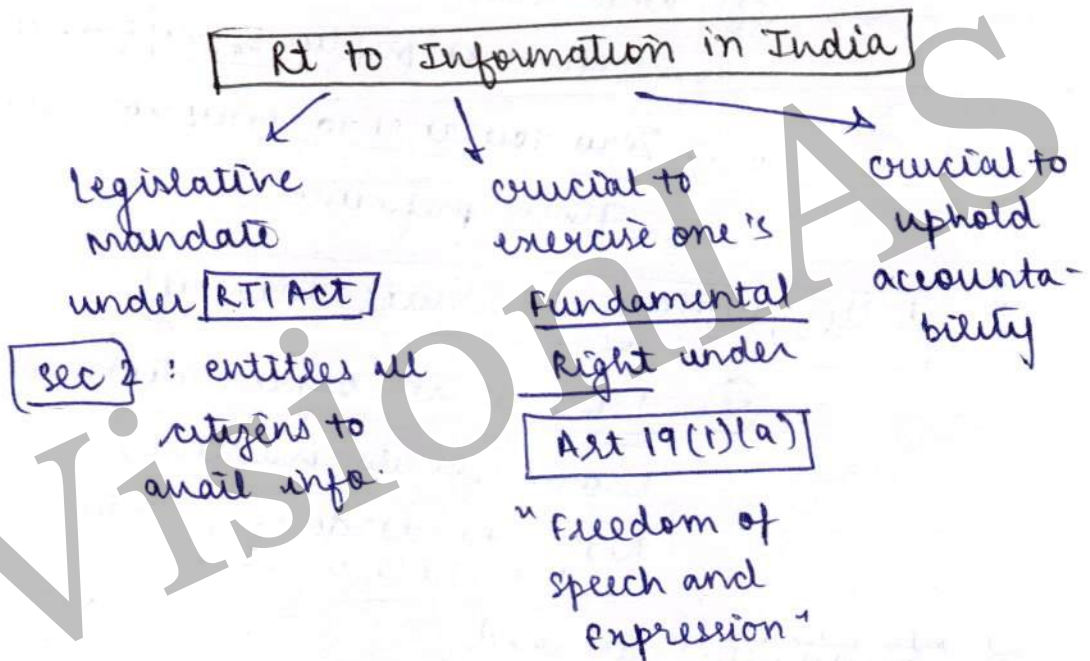 Rt to Information in India
Legislative
mandate
under RTI Act
Sec 2 : entitles all
citizens to
avail info
crucial to
exercise one's
Fundamental
Right under
Art 19(1)(a)
"Freedom of
speech and
expression"
crucial to
uphold
accounta-
bility
VisionIAS